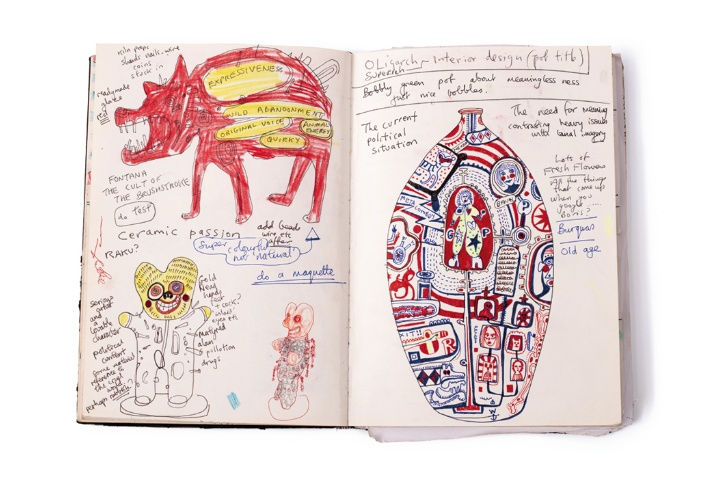 Kiln props
shards nails, wire
coins
stuck in
readymade
plates
EXPRESSIVENESS
WILD ABANDONMENT
ORIGINAL VOICE
ANIMAL
ENERGY
QUIRKY
FONTANA
THE CULT OF
THE BRUSHSTROKE
do test
Ceramic passion
RAKU?
add beads
wire etc
after
Super colourful
not 'natural'
do a maquette
serious
and
a
lovable
character
political
content
some
reference to
the
perhaps
Gold
head
hands
feet
+ cock?
eyes etc
alan
pollution
drugs
OLigarch Interior design (pot title)
Superrich
Bobbly green pot about meaninglessness
just nice bobbles.
The current
political
situation
The need for meaning
contrasting heavy issues
with banal imagery
Lots of
Fresh Flowers
All the things
that come up
when you
google ....
Boris?
Burquas
Old age
UR